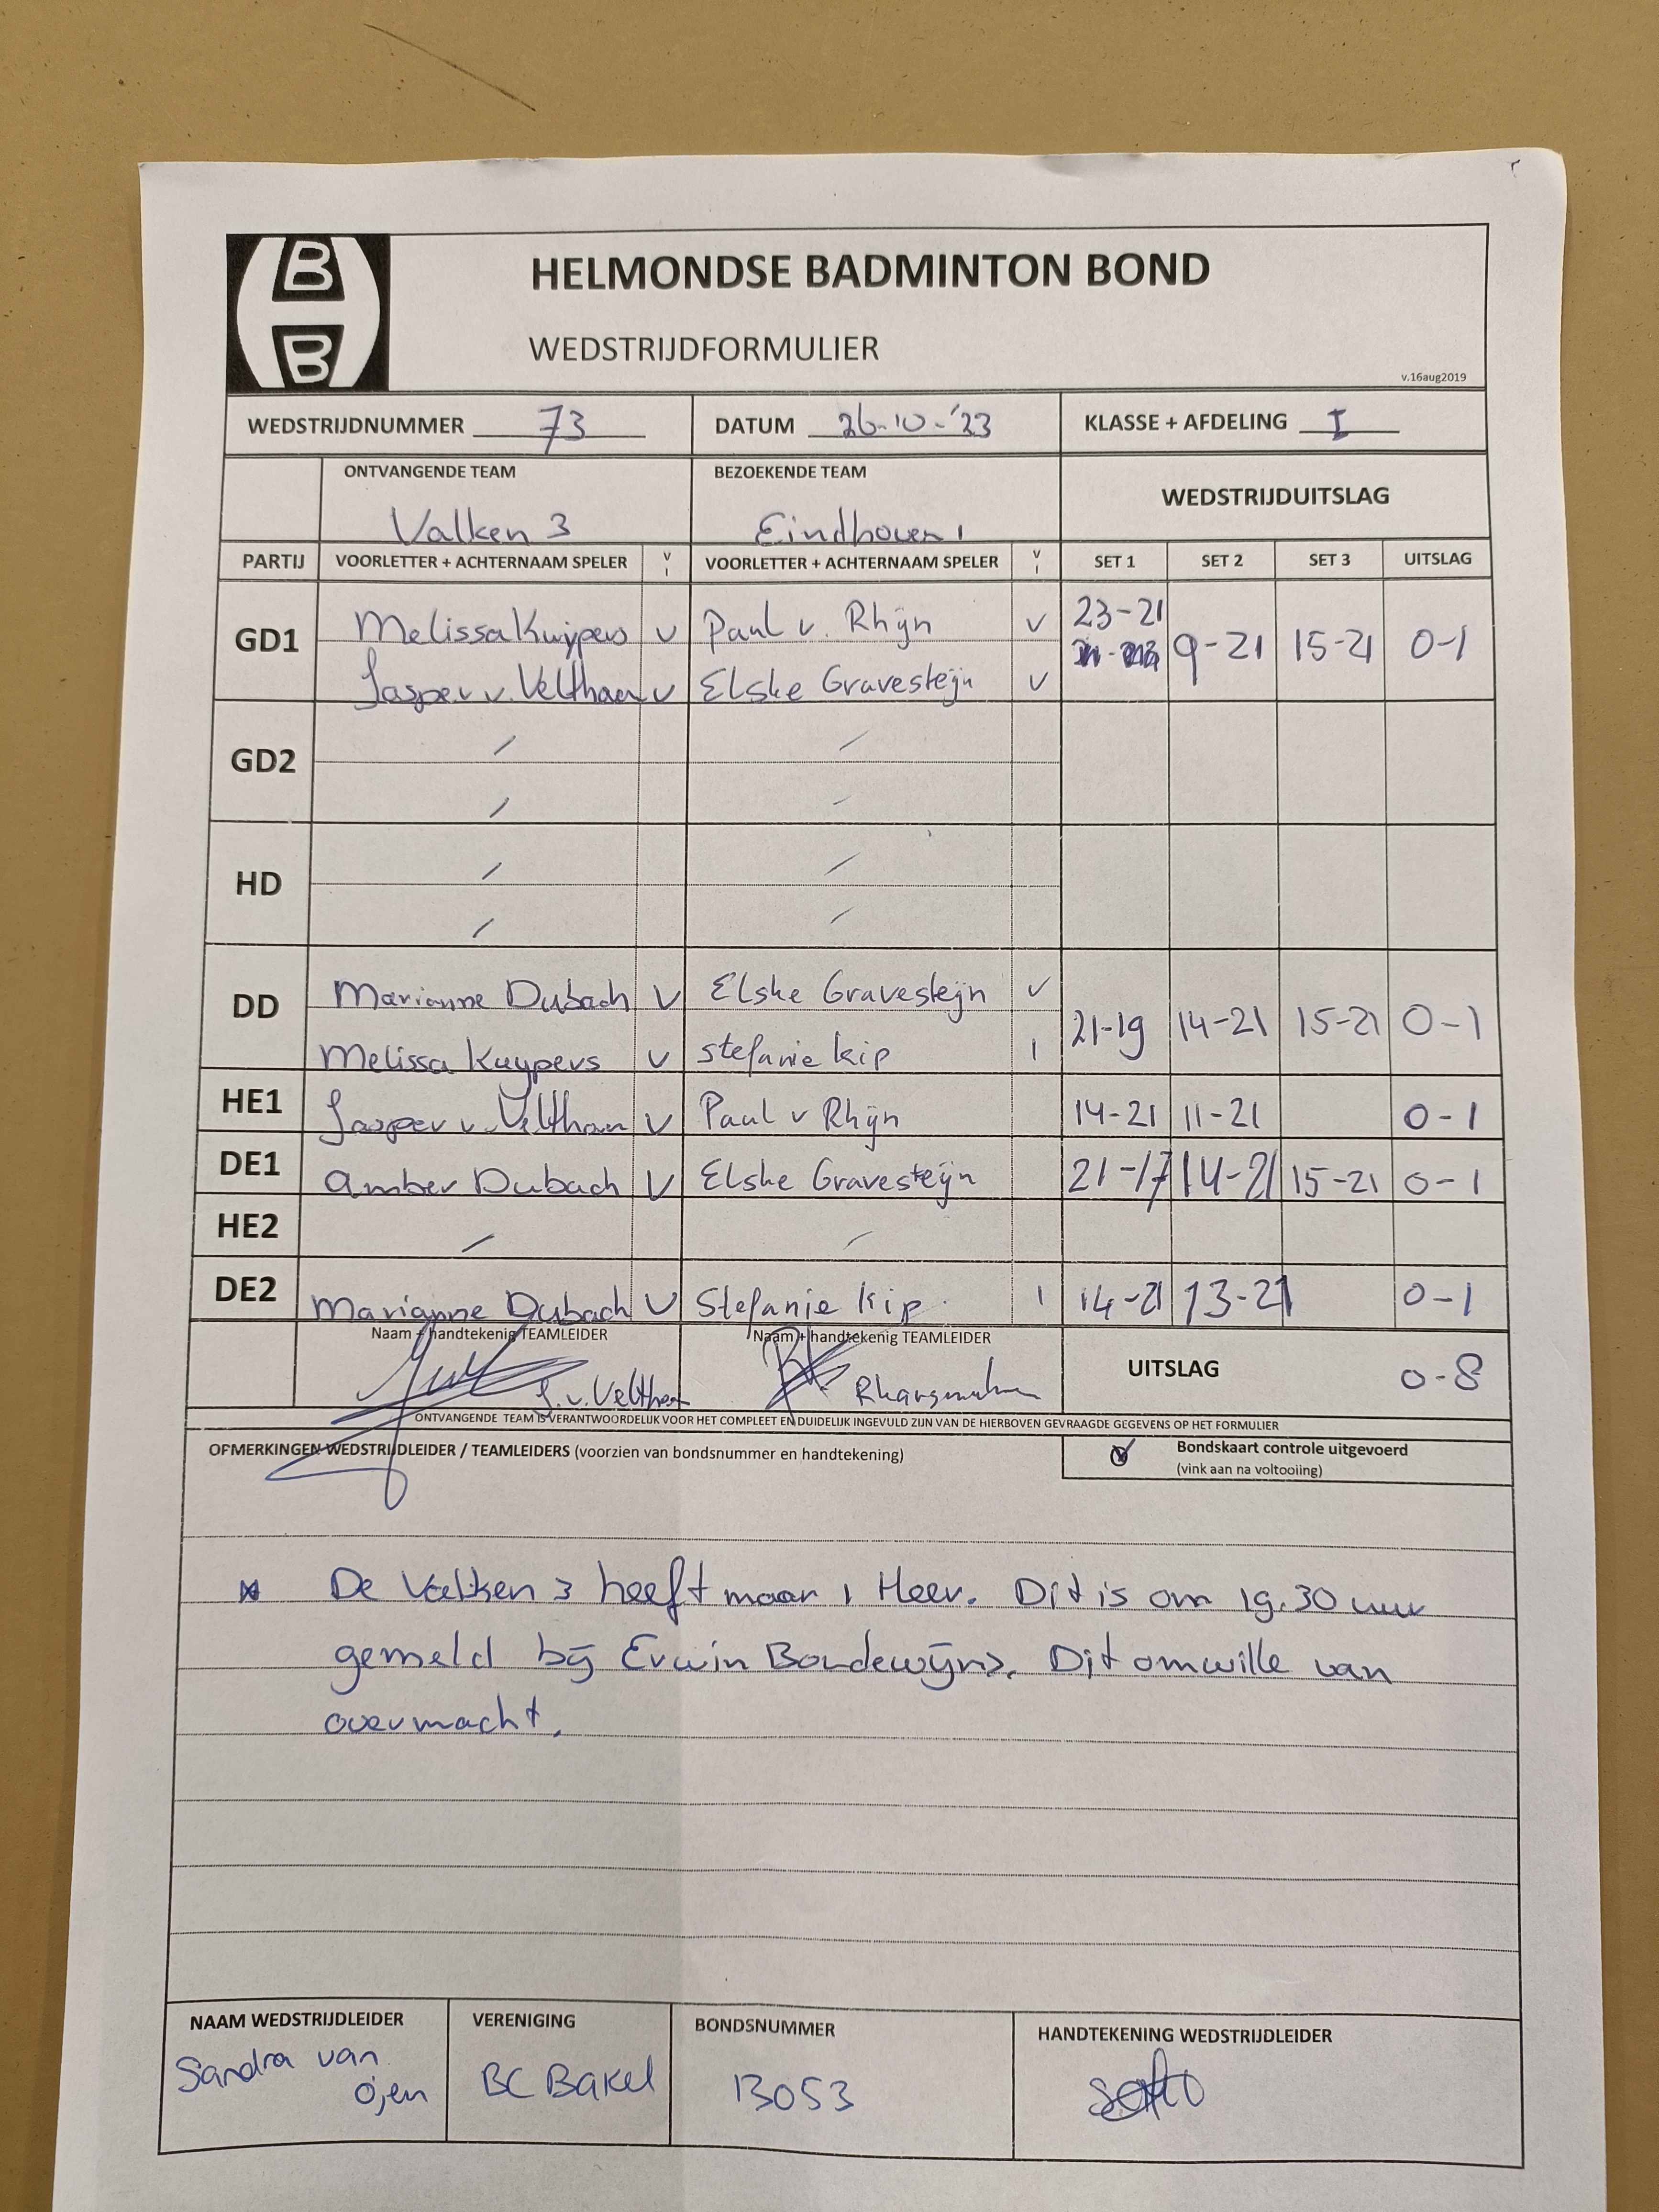 B
B
HELMONDSE BADMINTON BOND
WEDSTRIJDFORMULIER
v.16aug2019
WEDSTRIJDNUMMER 73 DATUM 26-10-'23 KLASSE + AFDELING I
ONTVANGENDE TEAM BEZOEKENDE TEAM WEDSTRIJDUITSLAG
Valken 3 Eindhoven 1
PARTIJ VOORLETTER + ACHTERNAAM SPELER V I VOORLETTER + ACHTERNAAM SPELER V I SET 1 SET 2 SET 3 UITSLAG
GD1 Melissa Kuijpers v Paul v. Rhijn v 23-21 9-21 15-21 0-1
Jasper v. Velthoven v Elske Gravesteijn v
GD2 / /
/ /
HD / /
/ /
DD Marianne Dubach v Elske Gravesteijn v 21-19 14-21 15-21 0-1
Melissa Kuypers v Stefanie kip I
HE1 Jasper v. Velthoven v Paul v Rhijn 14-21 11-21 0-1
DE1 Amber Dubach v Elske Gravesteijn 21-17 14-21 15-21 0-1
HE2 / /
DE2 Marianne Dubach v Stefanie kip I 14-21 13-21 0-1
Naam + handtekenig TEAMLEIDER Naam + handtekenig TEAMLEIDER
J. v. Velthoven UITSLAG 0-8
ONTVANGENDE TEAM IS VERANTWOORDELIJK VOOR HET COMPLEET EN DUIDELIJK INGEVULD ZIJN VAN DE HIERBOVEN GEVRAAGDE GEGEVENS OP HET FORMULIER
OPMERKINGEN WEDSTRIJDLEIDER / TEAMLEIDERS (voorzien van bondsnummer en handtekening) Bondskaart controle uitgevoerd
(vink aan na voltooiing)
* De Valken 3 heeft maar 1 Heer. Dit is om 19.30 uur
gemeld bij Erwin Boudewijns. Dit omwille van
overmacht.
NAAM WEDSTRIJDLEIDER VERENIGING BONDSNUMMER HANDTEKENING WEDSTRIJDLEIDER
Sandra van
Oijen BC Bakel 13053